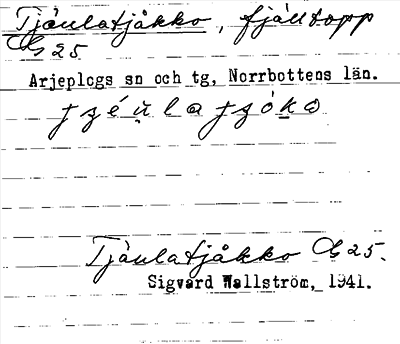 Tjåulatjåkko, fjälltopp
G 25
Arjeplogs sn och tg, Norrbottens län.
Tjåulatjåkko G 25.
Sigvard Wallström, 1941.